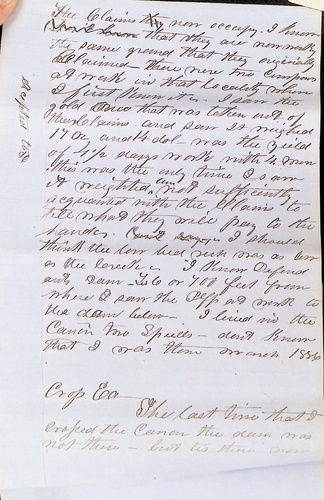 the Claims they now occupy. I know
that they are now working
the same ground that they originally
Claimed - there were two companys
at work in that locality when
I first knew it. I saw the
gold that was taken out of
the Claims. and saw it weighed
17 oz and 4 dol - was the yield
of 4 1/2 days work with 4 men
this was the only time I saw
it weighed, not sufficiently
acquainted with the Claims to
tell what they will pay to the
hands. I should
think the low bed rock was as low
as the Creek. I know Defend
ants dam - 6 or 700 feet from
where I saw the Plff at work to
the dam below - I lived in the
Canon two Spells - dont know
that I was there march 1856
Cross Ex
The last time that I
crossed the Canon the dam was
not there - but